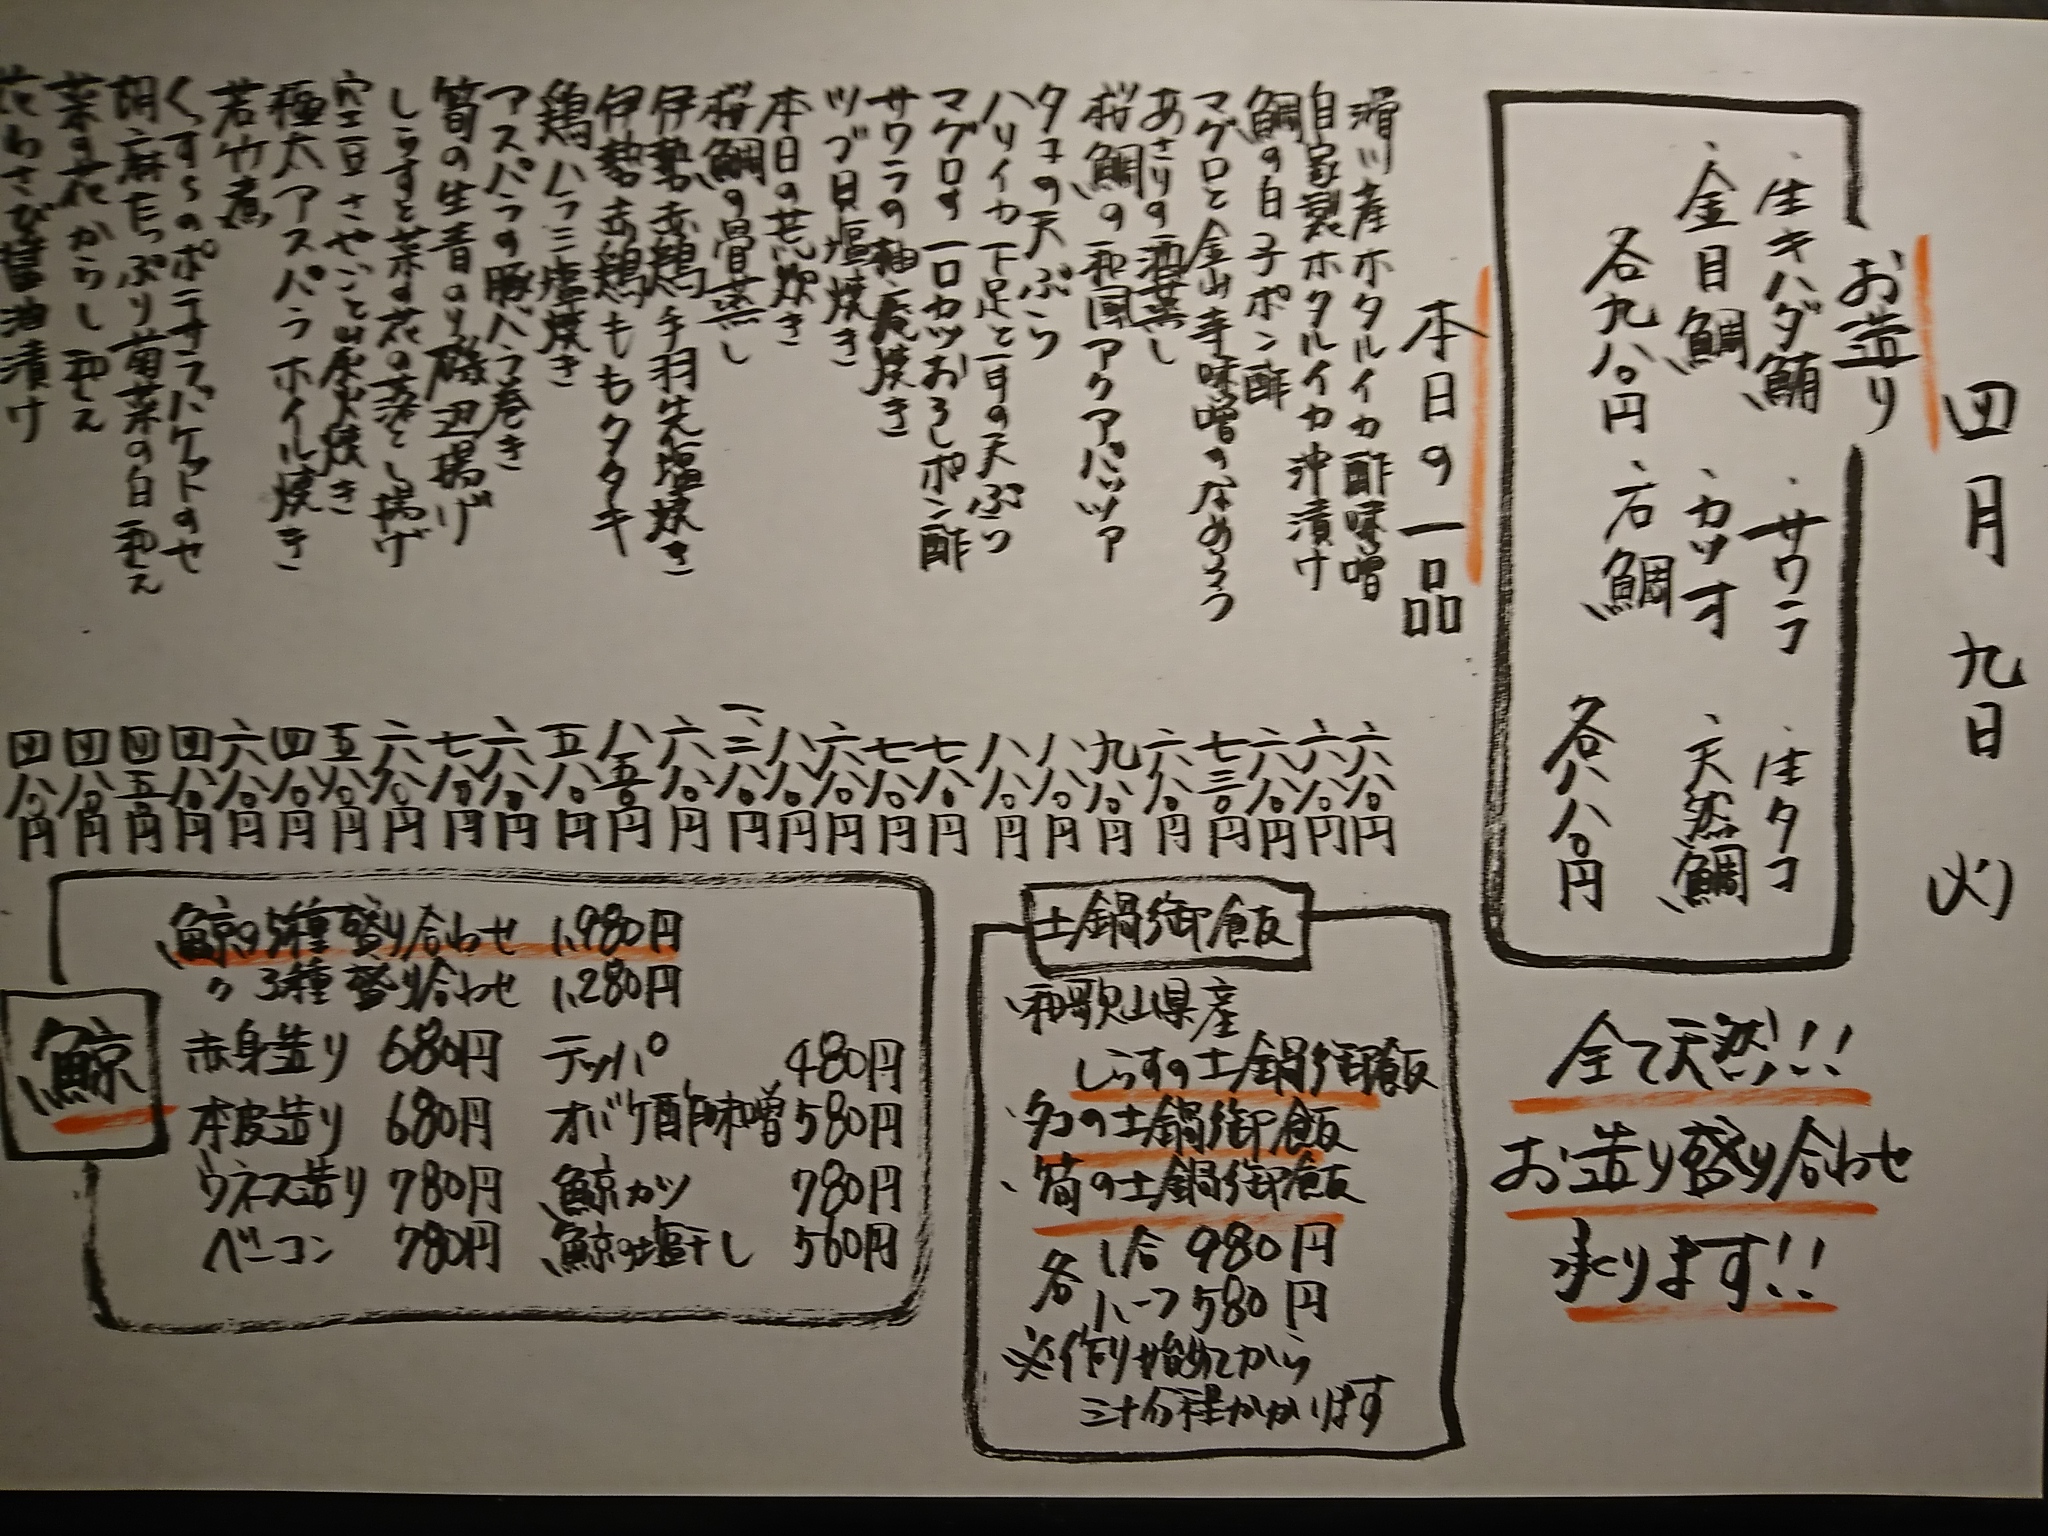 四月九日 火
お造り
・生キハダ鮪 ・サワラ ・生タコ
・金目鯛 ・カツオ ・天然鯛
各九八〇円 ・石鯛 各八八〇円
全て天然!!
お造り盛り合わせ
承ります!!
本日の一品
滑川産ホタルイカ酢味噌 六八〇円
自家製ホタルイカ沖漬け 六八〇円
鯛の白子ポン酢 六八〇円
マグロと金山寺味噌のなめろう 七三〇円
あさりの酒蒸し 六八〇円
桜鯛の和風アクアパッツァ 九八〇円
タコの天ぷら 八八〇円
ハリイカ下足と耳の天ぷら 八八〇円
マグロの一口カツおろしポン酢 七八〇円
サワラの柚庵焼き 七八〇円
ツブ貝塩焼き 六八〇円
本日の荒炊き 八八〇円
桜鯛の骨蒸し 一、二八〇円
伊勢赤鶏手羽先塩焼き 六八〇円
伊勢赤鶏ももタタキ 八五〇円
鶏ハラミ塩焼き 五八〇円
アスパラの豚バラ巻き 六八〇円
筍の生青のり磯辺揚げ 七八〇円
しらすと菜の花の落とし揚げ 六八〇円
空豆さやごと炭火焼き 五八〇円
極太アスパラホイル焼き 四八〇円
若竹煮 六八〇円
くずらのポテサラバケットのせ 四八〇円
胡麻たっぷり菊菜の白和え 四五〇円
菜の花からし和え 四八〇円
花わさび醤油漬け 四八〇円
土鍋御飯
、和歌山県産
しらすの土鍋御飯
、タコの土鍋御飯
、筍の土鍋御飯
各 1合 980円
ハーフ 580円
※作り始めてから
三十分程かかります
鯨
鯨の5種盛り合わせ 1,980円
〃 3種盛り合わせ 1,280円
赤身造り 680円 テッパ 480円
本皮造り 680円 オバケ酢味噌 580円
ウネス造り 780円 鯨カツ 780円
ベーコン 780円 鯨の塩干し 560円